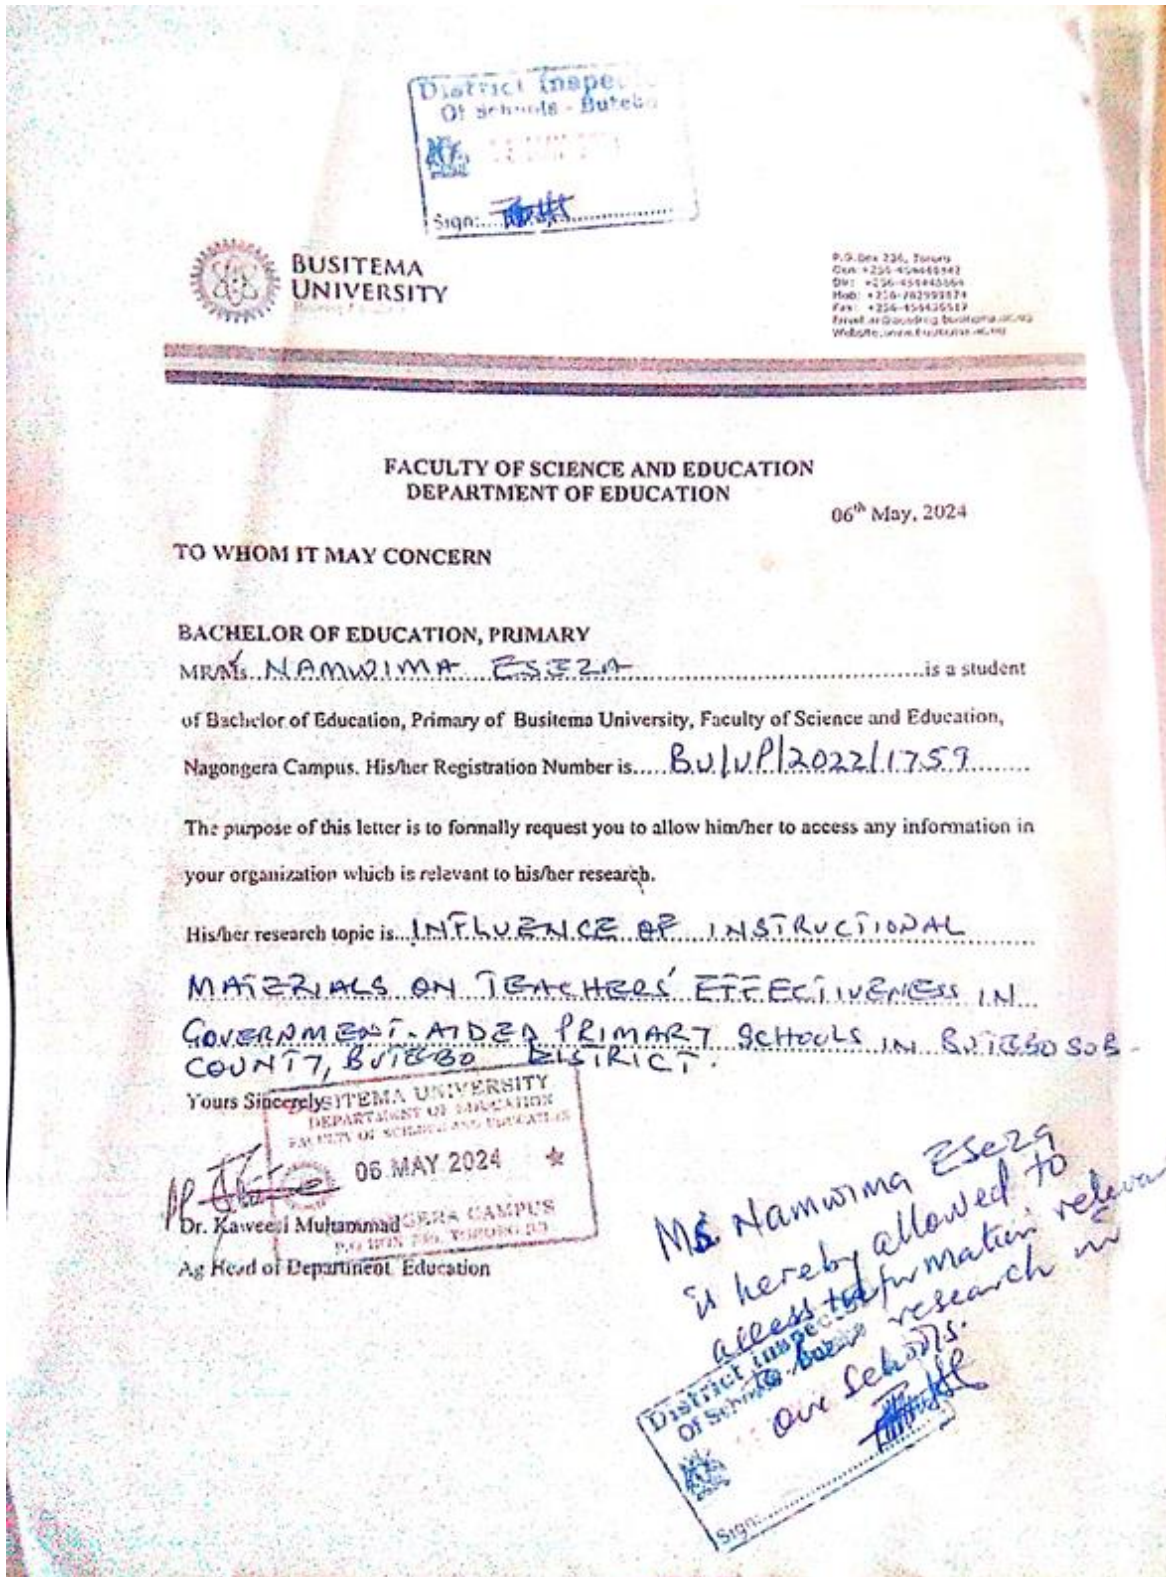 District Inspe
Of Schools - Butebo
Sign:
BUSITEMA
UNIVERSITY
P.O.Box 236, Tororo
FACULTY OF SCIENCE AND EDUCATION
DEPARTMENT OF EDUCATION
06th May, 2024
TO WHOM IT MAY CONCERN
BACHELOR OF EDUCATION, PRIMARY
MR/Ms. NAMWIMA ESEZA is a student
of Bachelor of Education, Primary of Busitema University, Faculty of Science and Education,
Nagongera Campus. His/her Registration Number is BU/UP/2022/1759
The purpose of this letter is to formally request you to allow him/her to access any information in
your organization which is relevant to his/her research.
His/her research topic is INFLUENCE OF INSTRUCTIONAL
MATERIALS ON TEACHERS' EFFECTIVENESS IN
GOVERNMENT-AIDED PRIMARY SCHOOLS IN BUTEBO SUB-
COUNTY, BUTEBO DISTRICT.
Yours Sincerely
BUSITEMA UNIVERSITY
DEPARTMENT OF EDUCATION
FACULTY OF SCIENCE AND EDUCATION
06 MAY 2024
GERA CAMPUS
Dr. Kaweesi Muhammad
Ag Head of Department Education
Ms Namwima Eseza
is hereby allowed to
access information releva
to her research in
our schools.
District Inspector
Of Schools
Sign: